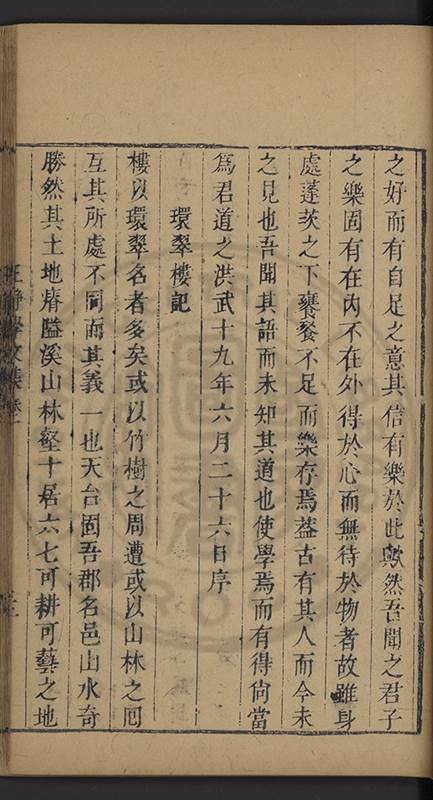 之好而有自足之意其信有樂於此歟然吾聞之君子
之樂固有在內不在外得於心而無待於物者故雖身
處蓬茨之下饔餐不足而樂存焉葢古有其人而今未
之見也吾聞其語而未知其道也使學焉而有得尙當
爲君道之洪武十九年六月二十六日序
環翠樓記
樓以環翠名者多矣或以竹樹之周遭或以山林之囘
互其所處不同而其義一也天台固吾郡名邑山水奇
勝然其土地瘠隘溪山林壑十居六七可耕可藝之地
王靜學文集